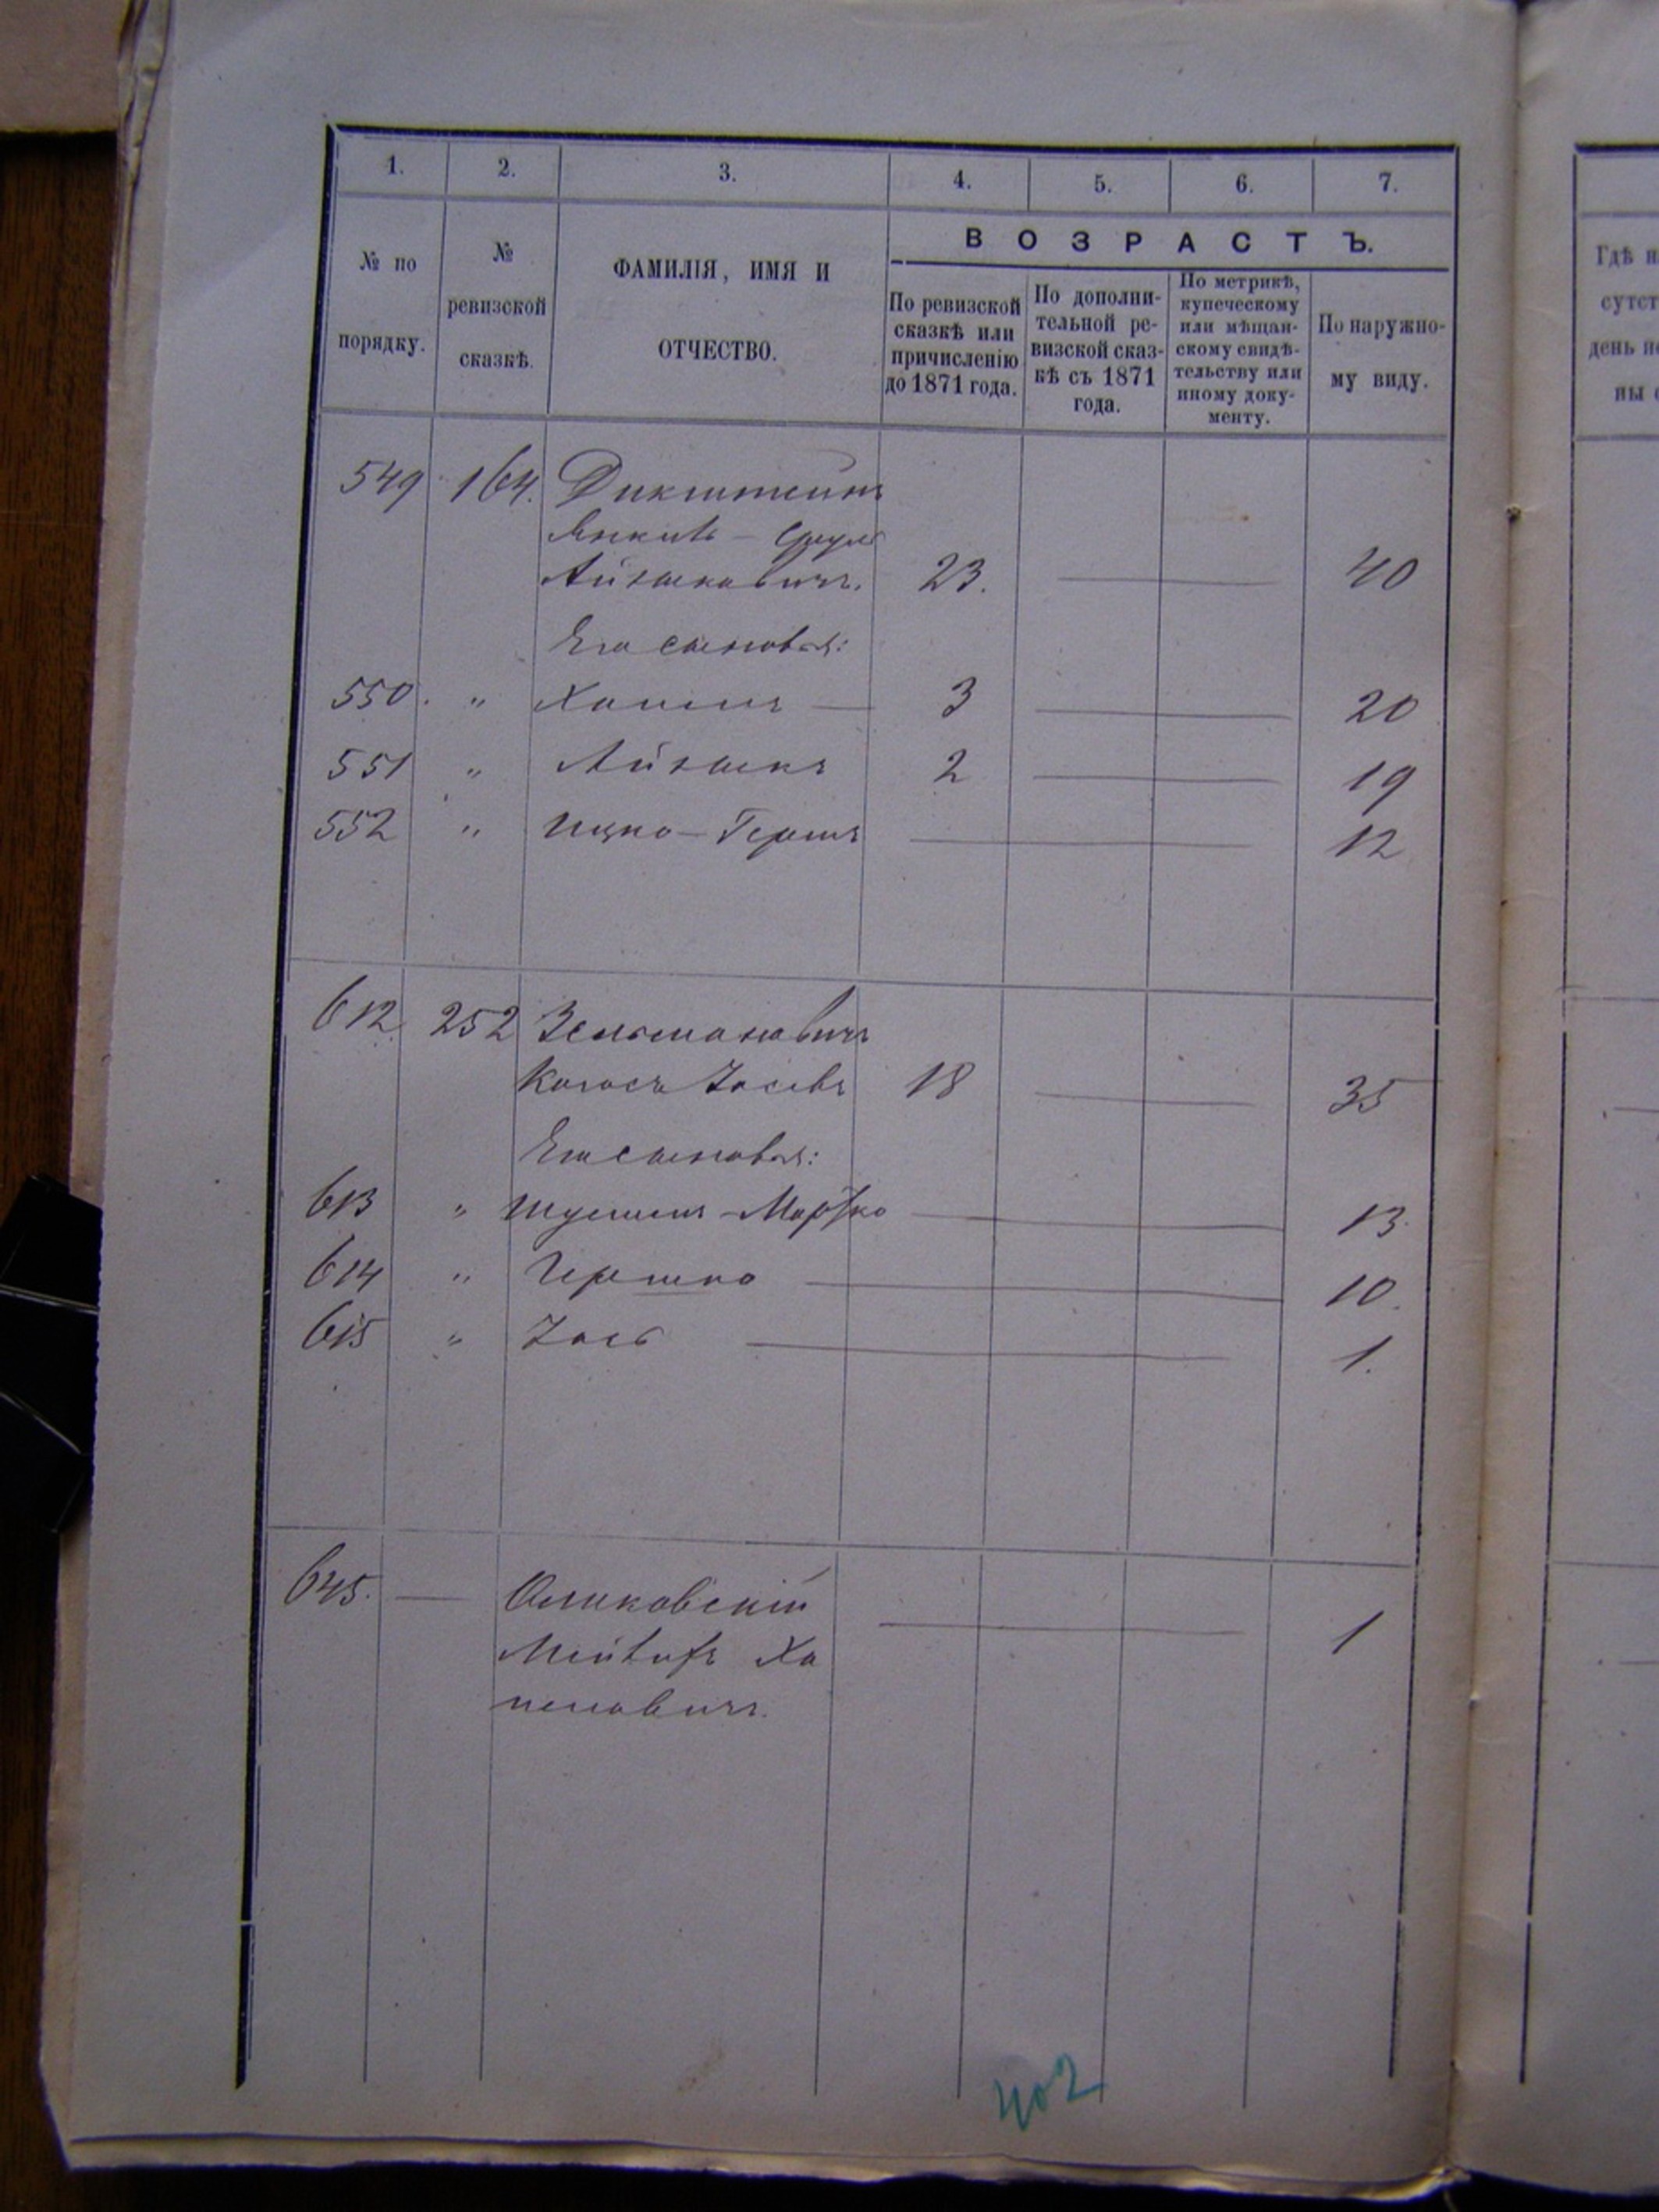 1. 2. 3. 4. 5. 6. 7.
№ по порядку.
№ ревизской сказкѣ.
ФАМИЛІЯ, ИМЯ И ОТЧЕСТВО.
ВОЗРАСТЪ.
По ревизской сказкѣ или причисленію до 1871 года.
По дополнительной ревизской сказкѣ съ 1871 года.
По метрикѣ, купеческому или мѣщанскому свидѣтельству или иному документу.
По наружному виду.
549 164. Дикштейнъ
Янкель - Срул
Айзыковичъ. 23. 40
Его сыновья:
550. " Хаимъ 3 20
551 " Айзыкъ 2 19
552 " Ицко - Гершъ 12
612 252 Зельмановичъ
Іосевъ 18 35
Его сыновья:
613 " - Мортко 13.
614 " Гершко 10.
615 " Іось 1.
645. Оликовскій 1
Ха
402
Гдѣ н
сутст
день п
ны